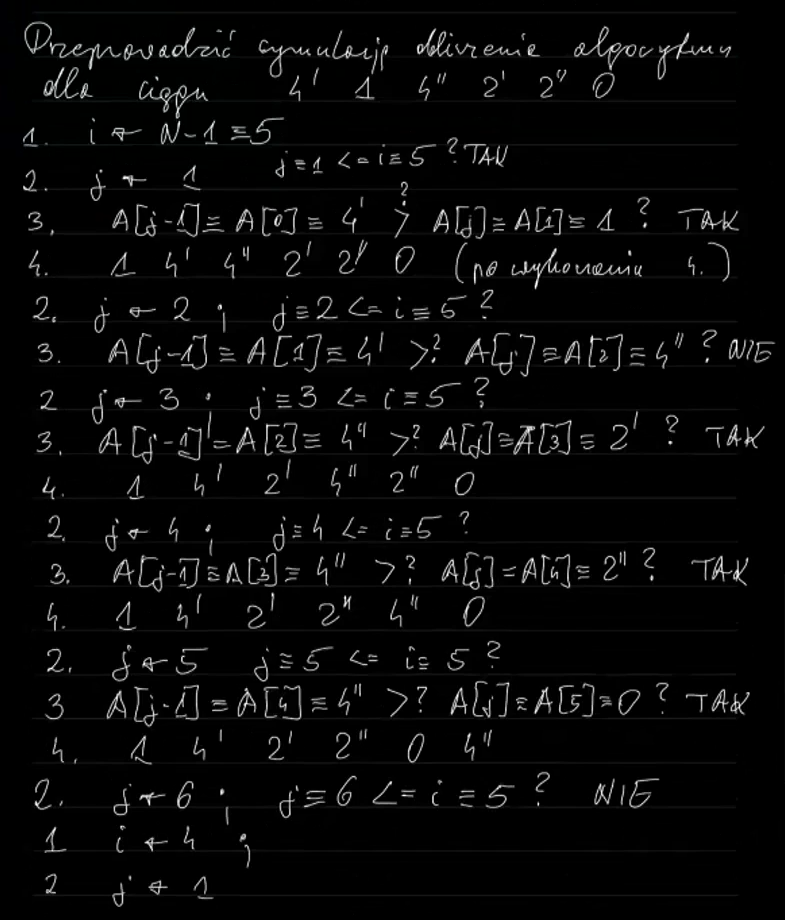 Przeprowadzić symulację działania algorytmu
dla ciągu 4' 1 4'' 2' 2'' 0
1. i ← N-1 ≡ 5
2. j ← 1 j ≡ 1 <= i ≡ 5 ? TAK
3. A[j-1] ≡ A[0] ≡ 4' >? A[j] ≡ A[1] ≡ 1 ? TAK
4. 1 4' 4'' 2' 2'' 0 (po wykonaniu 4.)
2. j ← 2 ; j ≡ 2 <= i ≡ 5 ?
3. A[j-1] ≡ A[1] ≡ 4' >? A[j] ≡ A[2] ≡ 4'' ? NIE
2 j ← 3 ; j ≡ 3 <= i ≡ 5 ?
3. A[j-1] = A[2] ≡ 4'' >? A[j] ≡ A[3] ≡ 2' ? TAK
4. 1 4' 2' 4'' 2'' 0
2. j ← 4 ; j ≡ 4 <= i ≡ 5 ?
3. A[j-1] ≡ A[3] ≡ 4'' >? A[j] = A[4] ≡ 2'' ? TAK
4. 1 4' 2' 2'' 4'' 0
2. j ← 5 j ≡ 5 <= i ≡ 5 ?
3 A[j-1] ≡ A[4] ≡ 4'' >? A[j] ≡ A[5] ≡ 0 ? TAK
4. 1 4' 2' 2'' 0 4''
2. j ← 6 ; j ≡ 6 <= i ≡ 5 ? NIE
1 i ← 4 ;
2 j ← 1